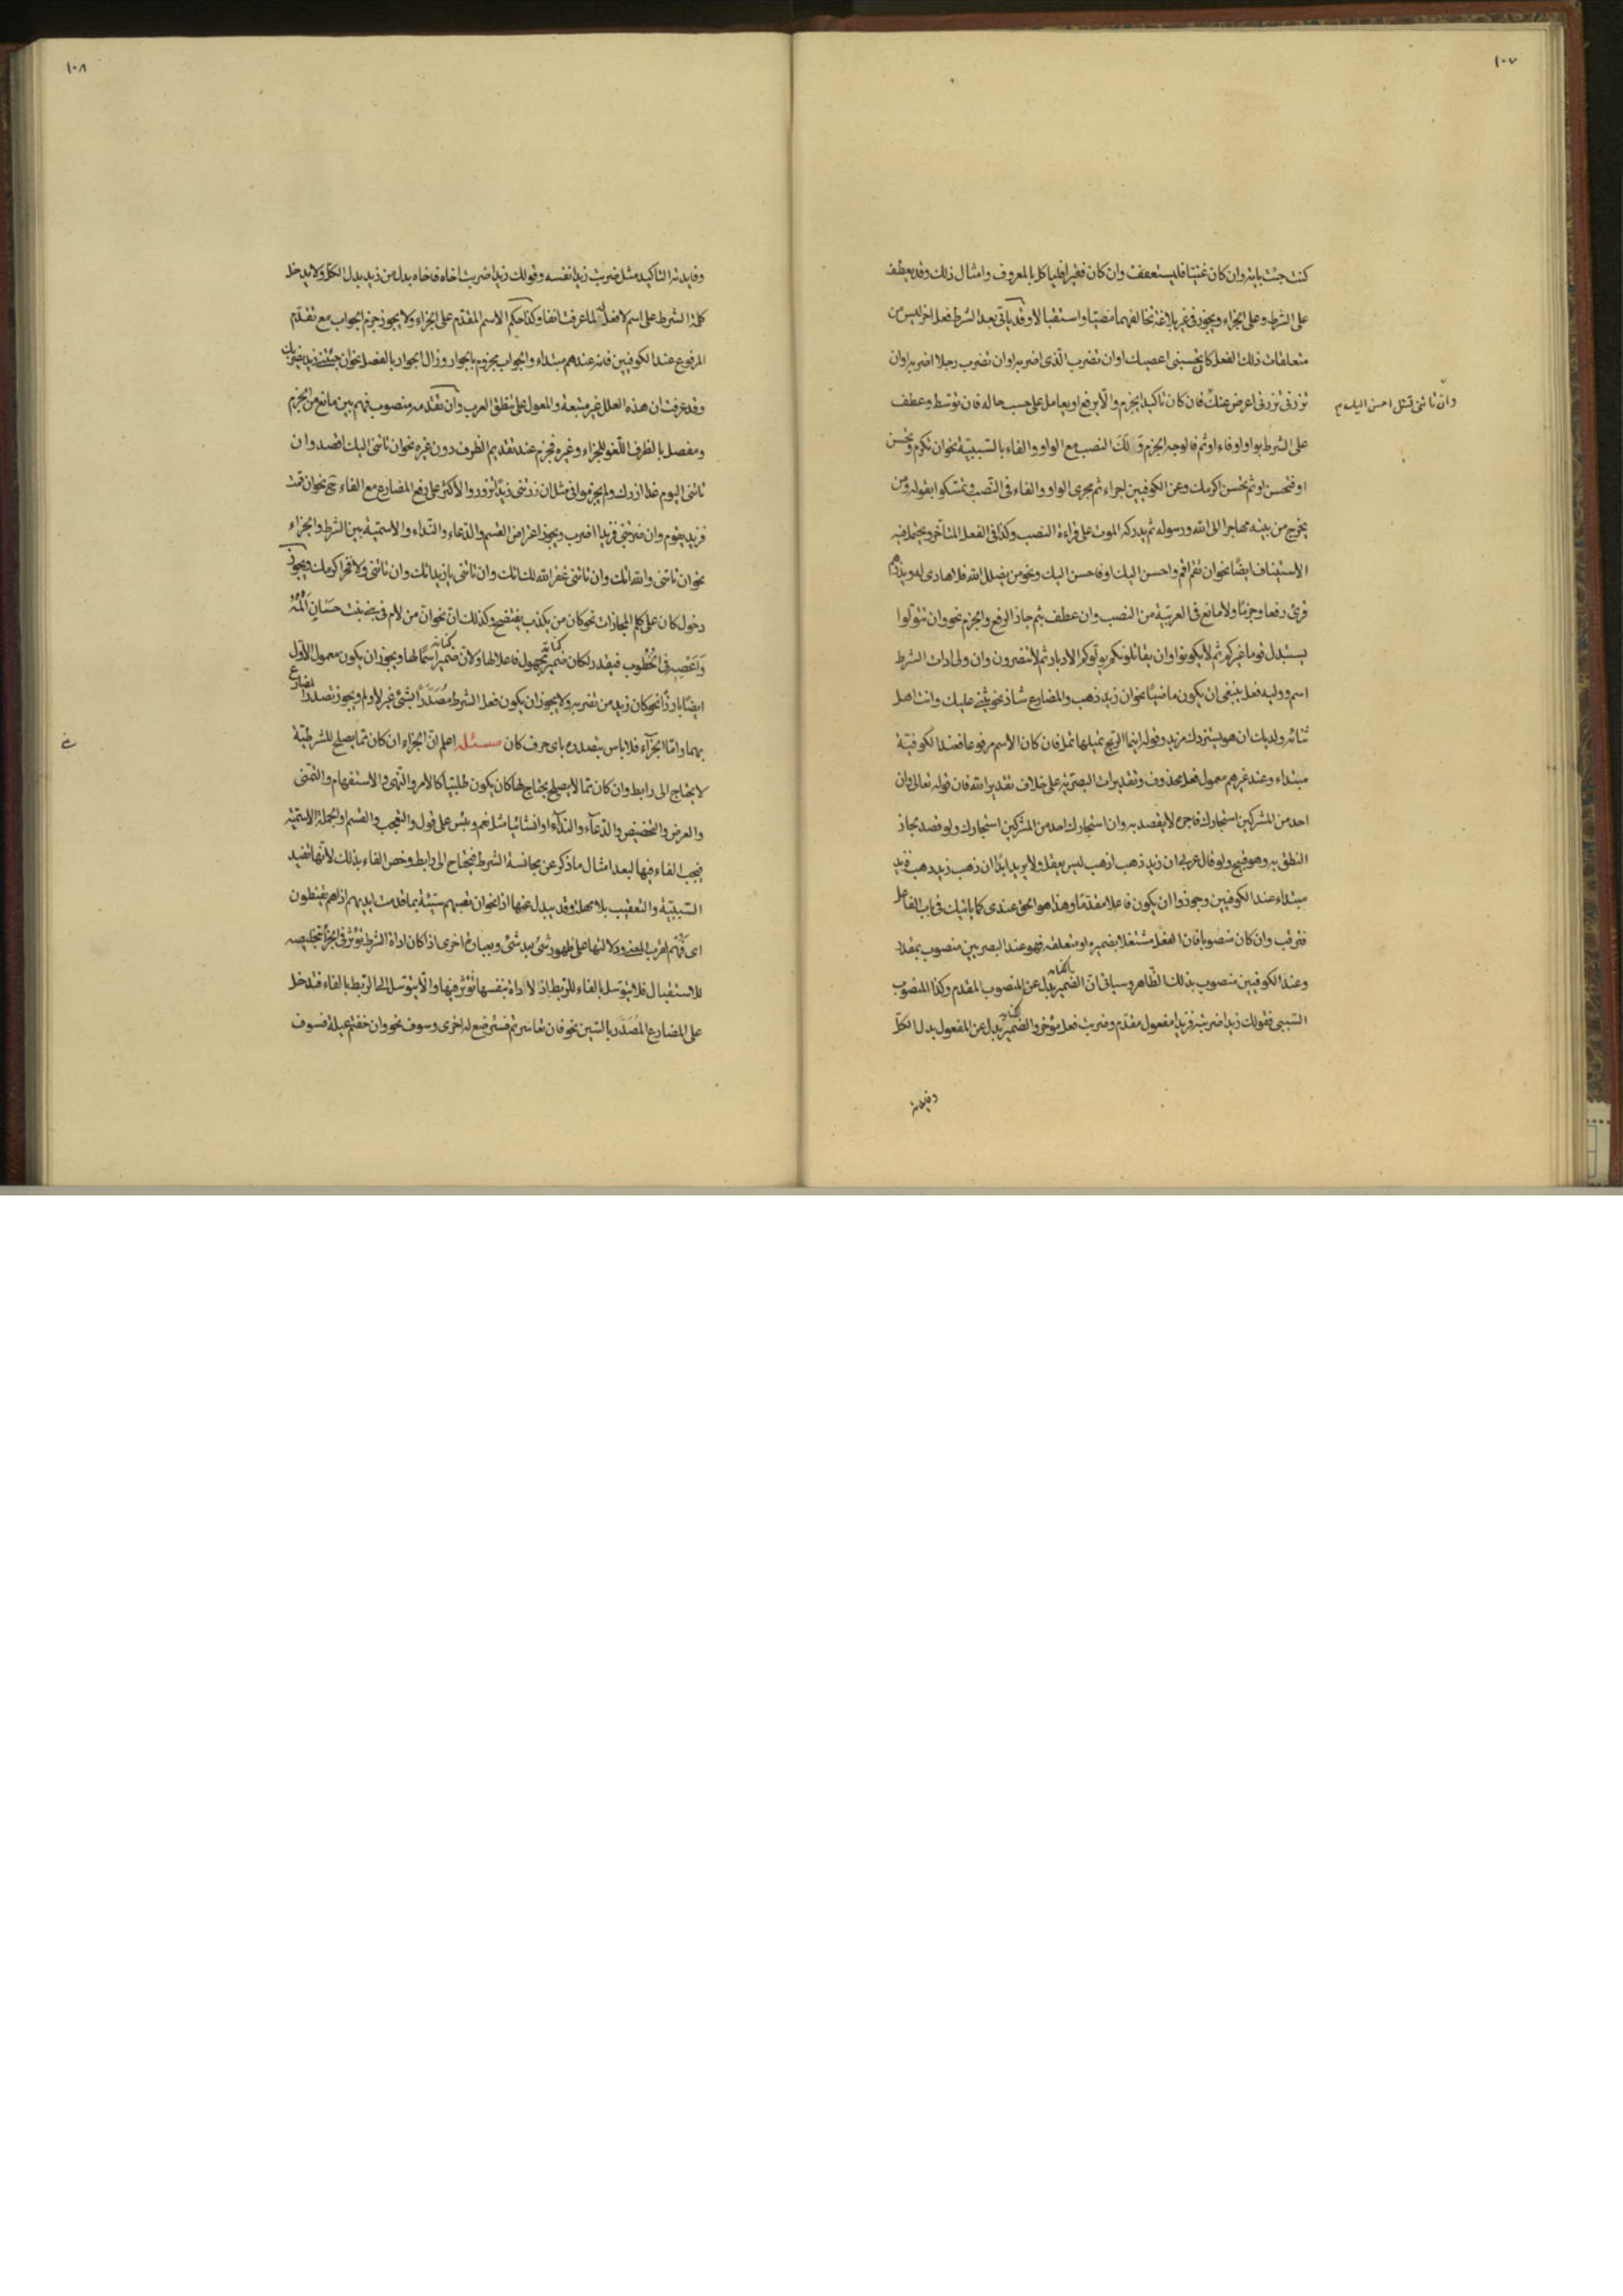 ١٠٧
كنت جئت باية وان كان غنيا فليستعفف وان كان فقيرا فلياكل بالمعروف وامثال ذلك وقد يعطف
على الشرط وعلى الجزاء ويجوز فى غير بلاغة تخالفهما مضيا واستقبالا وقد ياتى بعد الشرط فعل اخر ليس من
متعلقات ذلك الفعل كان تحسبنى اعصيك اوان تضرب الذى اضربه اوان تضرب رجلا اضربه اوان
تزرنى تزرنى اعرض عنك فان كان تاكيدا يجزم والا يرفع او يعامل على حسب حاله فان توسط وعطف
وان تاتنى تسئل احسن اليك م
على الشرط بواو او فاء او ثم فالوجه الجزم ولك النصب مع الواو والفاء بالسببية نحو ان تكرم وتحسن
او فتحسن او ثم تحسن اكرمك وعن الكوفيين اجراء ثم مجرى الواو والفاء فى النصب وتمسكوا بقوله ومن
يخرج من بيته مهاجرا الى الله ورسوله ثم يدركه الموت على قراءة النصب وكذا فى الفعل المتأخر ويحتمل فيه
الاستيناف ايضا نحو ان تقم اقم واحسن اليك او فاحسن اليك ونحو من يضلل الله فلا هادى له ويذرهم
قرئ رفعا وجزما ولا مانع فى العربية من النصب وان عطف بثم جاز الرفع والجزم نحو وان تتولوا
يستبدل قوما غيركم ثم لا يكونوا وان يقاتلوكم يولوكم الادبار ثم لا ينصرون وان ولى ادات الشرط
اسم ووليه فعل ينبغى ان يكون ماضيا نحو ان زيد ذهب والمضارع شاذ نحو يثنى عليك وانت اهل
ثنائه ولديك ان هو يستزدك مزيد وقوله اينما الريح تميلها تمل فان كان الاسم مرفوعا فعند الكوفية
مبتداء وعند غيرهم معمول فعل محذوف وتقديرات البصرية على خلاف تقدير الله فان قوله تعالى وان
احد من المشركين استجارك فاجره لا يقصد به وان استجارك احد من المشركين استجارك ولو قصد لجاز
النطق به وهو قبيح ولو قال عربى ان زيد ذهب اذهب ليس يعقل ولا يريد ابدا ان ذهب زيد ذهب فزيد
مبتداء عند الكوفيين وجوزوا ان يكون فاعلا مقدما وهذا هو الحق عندى كما ياتيك فى باب الفاعل
فترقب وان كان منصوبا فان الفعل مشتغلا بضميره او متعلقه فهو عند البصريين منصوب بمقدر
وعند الكوفيين منصوب بذلك الظاهر وسياتى ان الضمير بدل عن المنصوب المقدم وكذا المنصوب
السببى فقولك زيدا ضربته فزيدا مفعول مقدم وضربت فعل مؤخر والضمير بدل عن المفعول بدل الكل
وفايدته
١٠٨
وفايدته التاكيد مثل ضربت زيدا نفسه وقولك زيدا ضربت اخاه فاخاه بدل من زيد بدل الكل ولا يدخل
كلمة الشرط على اسم لا فعل له لما عرفت انفا وكذا حكم الاسم المقدم على الجزاء ولا يجوز جزم الجواب مع تقدم
المرفوع عند الكوفيين فانه عندهم مبتداء والجواب يجزم بالجوار وزال الجوار بالفصل نحو ان جئتنى زيد يضربك
وقد عرفت ان هذه العلل غير متبعة والمعول على نطق العرب وان تقدمه منصوب فهم بين مانع من الجزم
ومفصل بالظرف اللغو للجزاء وغيره فجزم عند تقديم الظرف دون غيره نحو ان تاتنى اليك اقصد وان
تاتنى اليوم غدا ازرك ولم يجزموا فى مثل ان زرتنى زيدا تزور والاكثر على رفع المضارع مع الفاء ح نحو ان قمت
فزيد يقوم وان ضربتنى فزيدا اضرب ويجوز اعتراض القسم والدعاء والنداء والاسمية بين الشرط والجزاء
نحو ان تاتنى والله اتك وان تاتنى غفر الله لك اتك وان تاتنى يا زيد اتك وان تاتنى ولا فخر اكرمك ويجوز
دخول كان على كلم المجازات نحو كان من يكذب يفتضح وكذلك ان نحو ان من لام فى بنى بنت حسان المه
واعصه فى الخطوب فيقدر لكان ضمير مجهول فاعلا لها ولان ضمير اسما لها ويجوز ان يكون معمول الاول
ايضا بارزا نحو كان زيد من تضربه ولا يجوز ان يكون فعل الشرط مصدرا بشئ غير لا ولم ويجوز تصدر المضارع
بهما واما الجزآء فلا باس بتصدره باى حرف كان مسئلة اعلم ان الجزاء ان كان مما يصلح للشرطية
لا يحتاج الى رابط وان كان مما لا يصلح يحتاج لها كان يكون طلبيا كالامر والنهى والاستفهام والتمنى
والعرض والتحضيض والدعآء والندآء او انشائيا مثل نعم وبئس على قول والتعجب والقسم او الجملة الاسمية
فيجب الفاء فيها لبعد امثال ما ذكر عن مجانسة الشرط فيحتاج الى رابط وخص الفاء بذلك لانها تفيد
السببية والتعقيب بلا مهلة وقد يبدل عنها اذا نحو ان تصبهم سيئة بما قدمت ايديهم اذا هم يقنطون
اى فهم لقرب المعنى ودلالتها على ظهور شئ بعد شئ وبعبارة اخرى اذا كان اداة الشرط تؤثر فى الجزاء تخليصه
للاستقبال فلا يتوسل بالفاء للربط اذ الاداة بنفسها تؤثر فيها والا يتوسل الى الربط بالفاء فتدخل
على المضارع المصدر بالسين نحو فان تعاسرتم فسترضع له اخرى وسوف نحو وان خفتم عيلة فسوف